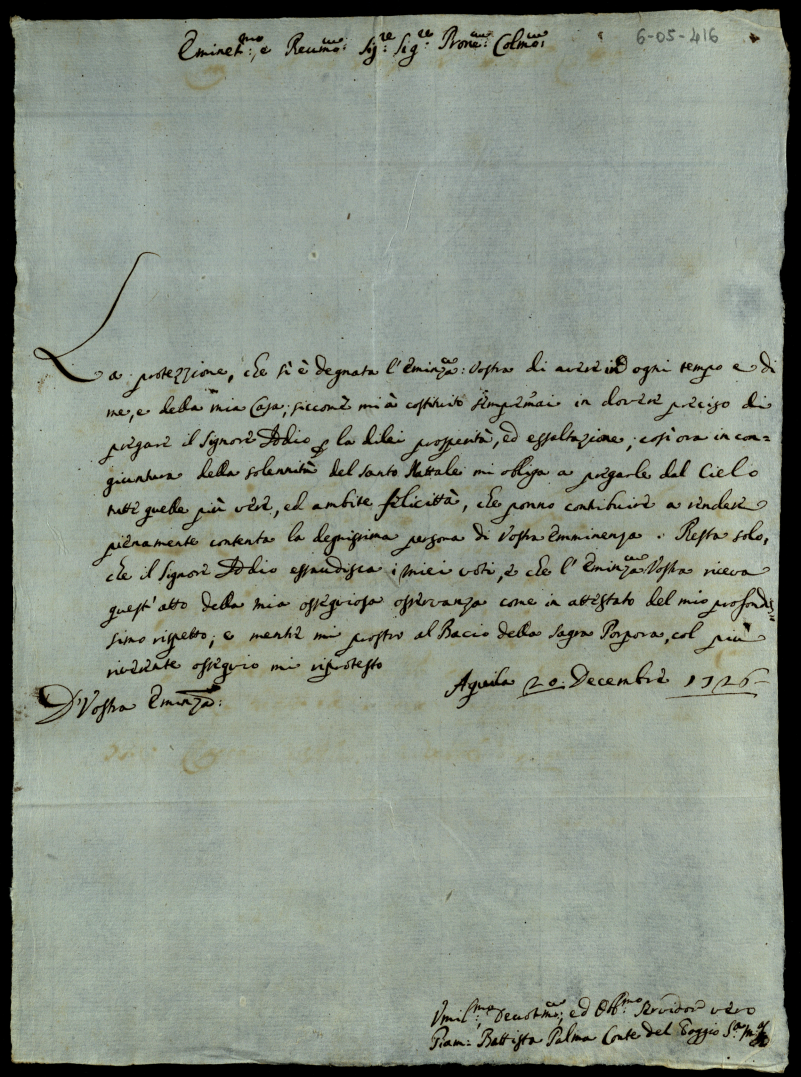 6-05-416
Eminet.mo, e Reumo: Sig.re Sig.re Prone: Colmo:
La protezzione, che si è degnata l'Eminza: Vostra di avere in ogni tempo e di
me, e della mia Casa; siccome mi à costituito sempremai in dovere preciso di
pregare il Signore Iddio p la dilei prosperità, ed essaltazione; così ora in con=
giuntura della solennità del Santo Nattale mi obliga a pregarle dal Cielo
tutte quelle più vere, ed ambite felicittà, che ponno contibuire a rendere
pienamente contenta la degnissima persona di Vostra Emminenza. Resta solo,
che il Signore Iddio essaudisca i miei voti, e che l'Eminza Vostra riceva
quest'atto della mia ossequiosa osservanza come in attestato del mio profondis=
simo rispetto; e mentre mi prostro al Bacio della Sagra Porpora, col più
riverente ossequio mi riprotesto
D'Vostra Eminza:
Aquila 20. Decembre 1726
Vmil.mo Deuotmo, ed Obl.mo Servidor vero
Giam: Battista Palma Conte del Poggio S.ta